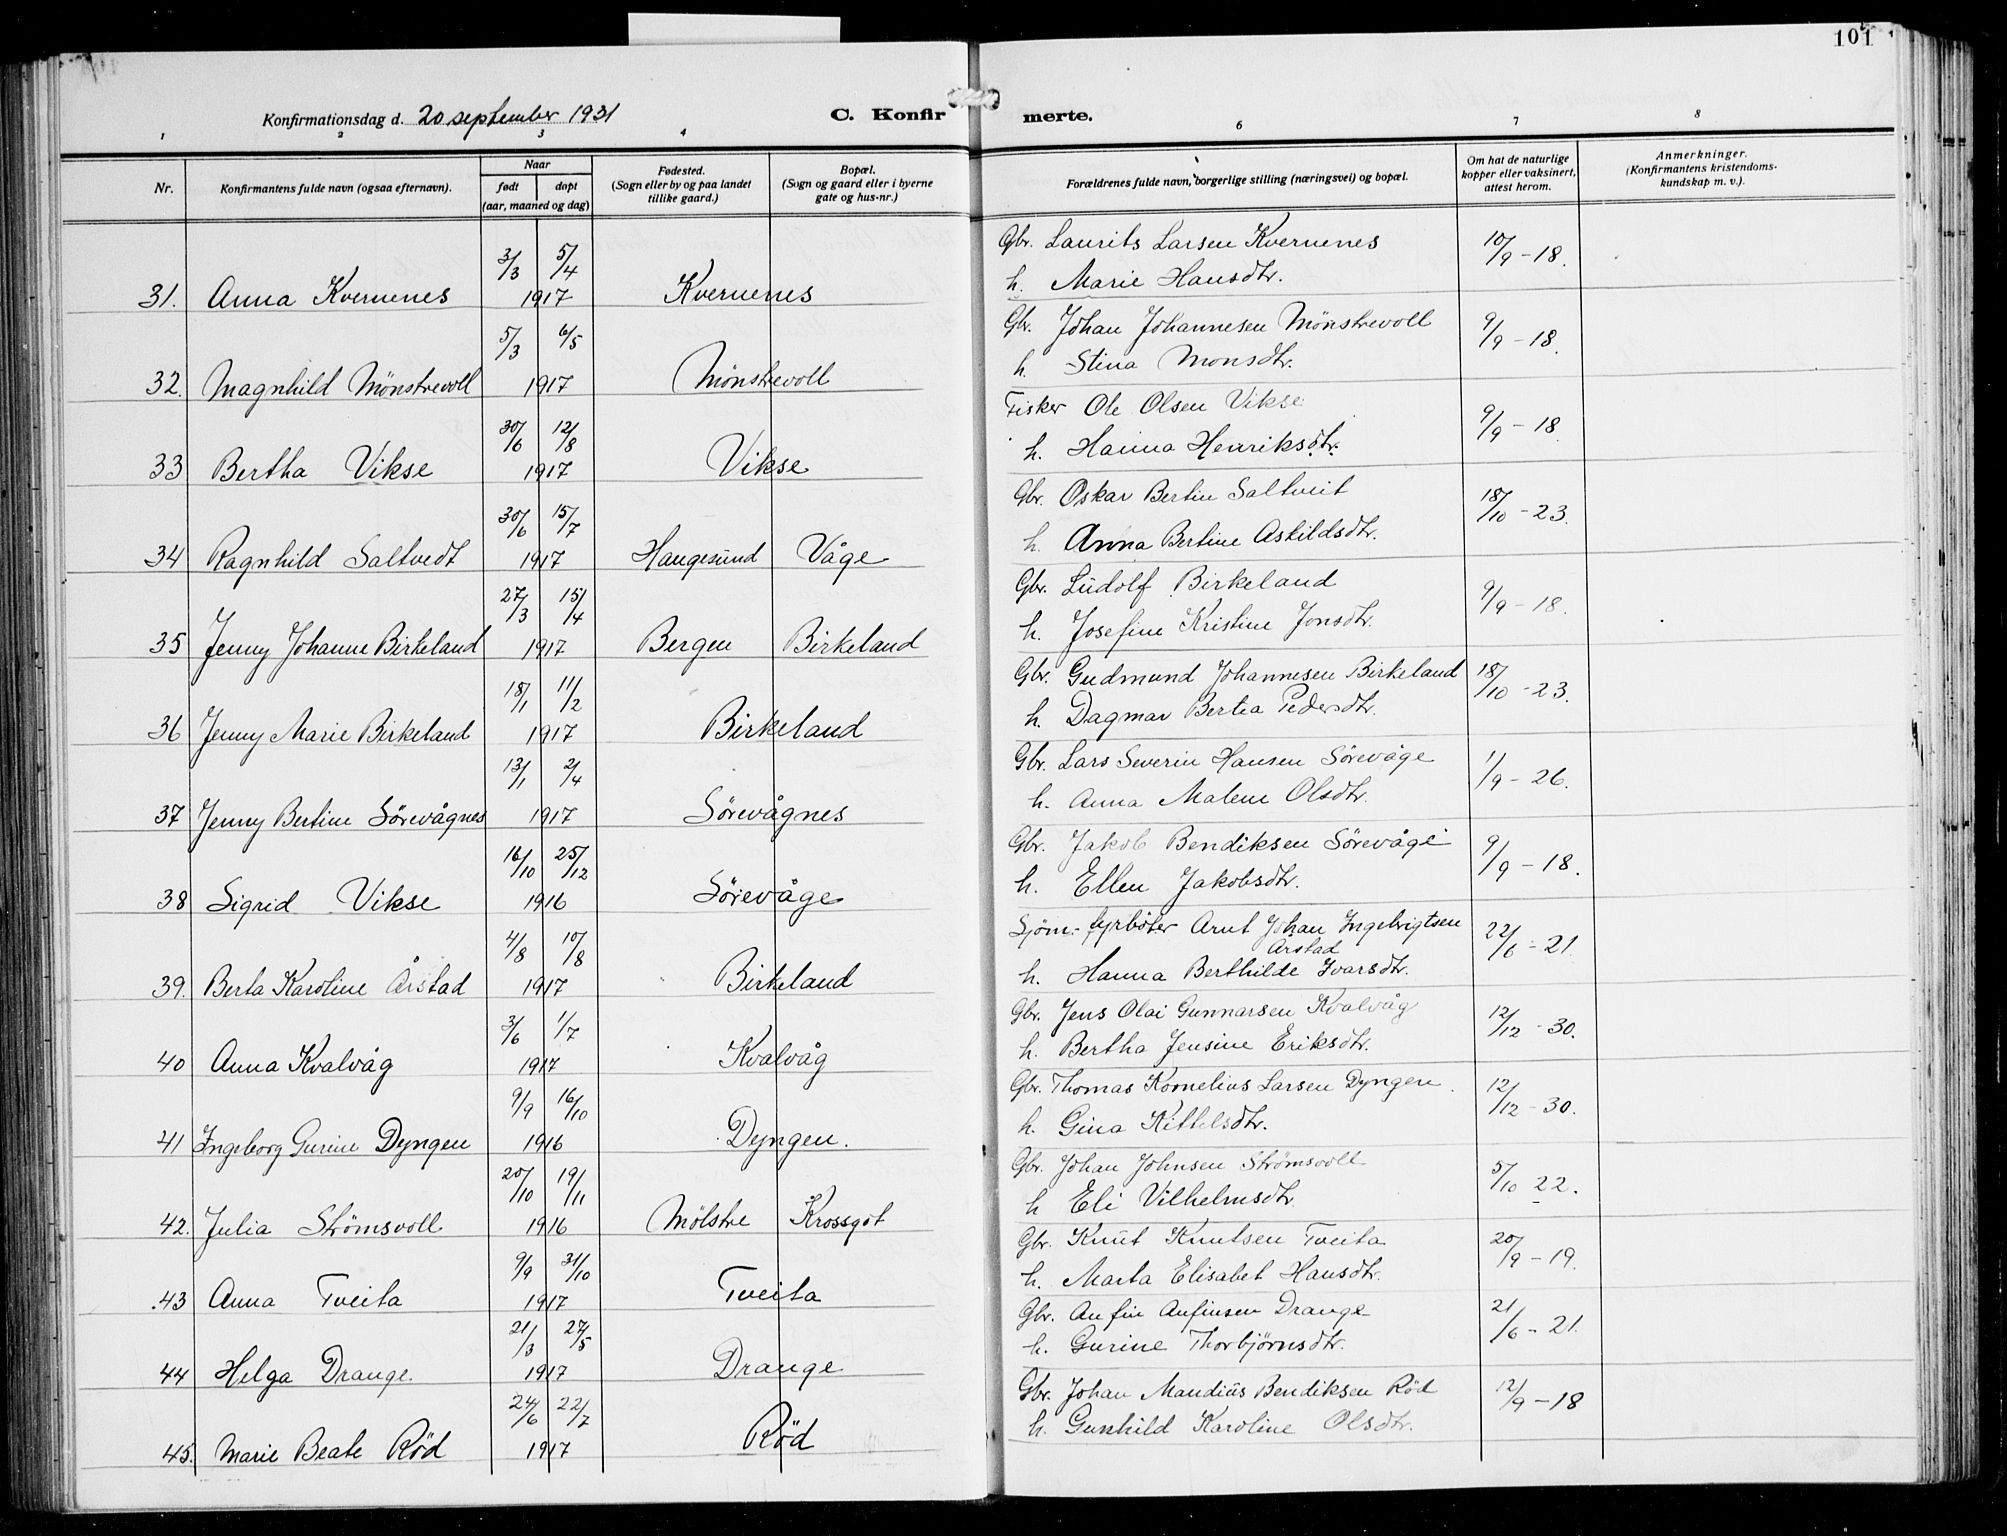 101
Konfirmationsdag d. 20 september 1931 C. Konfirmerte.
1 2 3 4 6 7 8
Nr. Konfirmantens fulde navn (ogsaa efternavn). Naar født døpt (aar, maaned og dag) Fødested. (Sogn eller by og paa landet tillike gaard.) Bopæl. (Sogn og gaard eller i byerne gate og hus-nr.) Forældrenes fulde navn, borgerlige stilling (næringsvei) og bopæl. Om hat de naturlige kopper eller vaksinert, attest herom. Anmerkninger. (Konfirmantens kristendomskundskap m. v.).
31. Anna Kvernenes 3/3 5/4 1917 Kvernenes Gbr. Laurits Larsen Kvernenes 10/9 - 18.
h. Marie Hansdtr.
32. Magnhild Mönstrevoll 5/3 6/5 1917 Mönstrevoll Gbr. Johan Johannesen Mönstrevoll 9/9 - 18.
h. Stina Monsdtr.
33 Bertha Vikse 30/6 12/8 1917 Vikse Fisker Ole Olsen Vikse 9/9 - 18.
h. Hanna Henriksdtr.
34 Ragnhild Saltvedt 30/6 15/7 1917 Haugesund Våge Gbr. Oskar Bertin Saltveit 18/10 - 23.
h. Anna Bertine Askildsdtr.
35 Jenny Johanne Birkeland 27/3 15/4 1917 Bergen Birkeland Gbr. Ludolf Birkeland 9/9 - 18.
h. Josefine Kristine Jonsdtr.
36 Jenny Marie Birkeland 18/1 11/2 1917 Birkeland Gbr. Gudmund Johannesen Birkeland 18/10 - 23.
h. Dagmar Berta Pedersdtr.
37 Jenny Bertine Sörevågnes 13/1 2/4 1917 Sörevågnes Gbr. Lars Severin Hansen Sörevåge 1/9 - 26.
h. Anna Malene Olsdtr.
38 Sigrid Vikse 16/10 25/12 1916 Sörevåge Gbr. Jakob Bendiksen Sörevåge 9/9 - 18.
h. Ellen Jakobsdtr.
39. Berta Karoline Årstad 4/8 10/8 1917 Birkeland Sjöm.- fyrböter Arnt Johan Ingebrigtsen Årstad 22/6 - 21.
h. Hanna Berthilde Ivarsdtr.
40 Anna Kvalvåg 3/6 1/7 1917 Kvalvåg Gbr. Jens Olai Gunnarsen Kvalvåg 12/12 - 30.
h. Bertha Jensine Eriksdtr.
41 Ingeborg Gurine Dyngen 9/9 16/10 1916 Dyngen. Gbr. Thomas Kornelius Larsen Dyngen. 12/12 - 30.
h. Gina Kittelsdtr.
42. Julia Strömsvoll 20/10 19/11 1916 Mölstre Krossgöt Gbr. Johan Johnsen Strömsvoll 5/10 22.
h Eli Vilhelmsdtr
43 Anna Tveita 9/9 31/10 1917 Tveita Gbr. Knut Knutsen Tveita 20/9 - 19.
h. Marta Elisabet Hansdtr.
44 Helga Drange 21/3 27/5 1917 Drange Gbr. Anfin Anfinsen Drange 21/6 - 21.
h. Gurine Thorbjørnsdtr.
45. Marie Beate Röd 24/6 22/7 1917 Röd Gbr. Johan Mandius Bendiksen Röd 12/9 - 18
h. Gunhild Karoline Olsdtr.